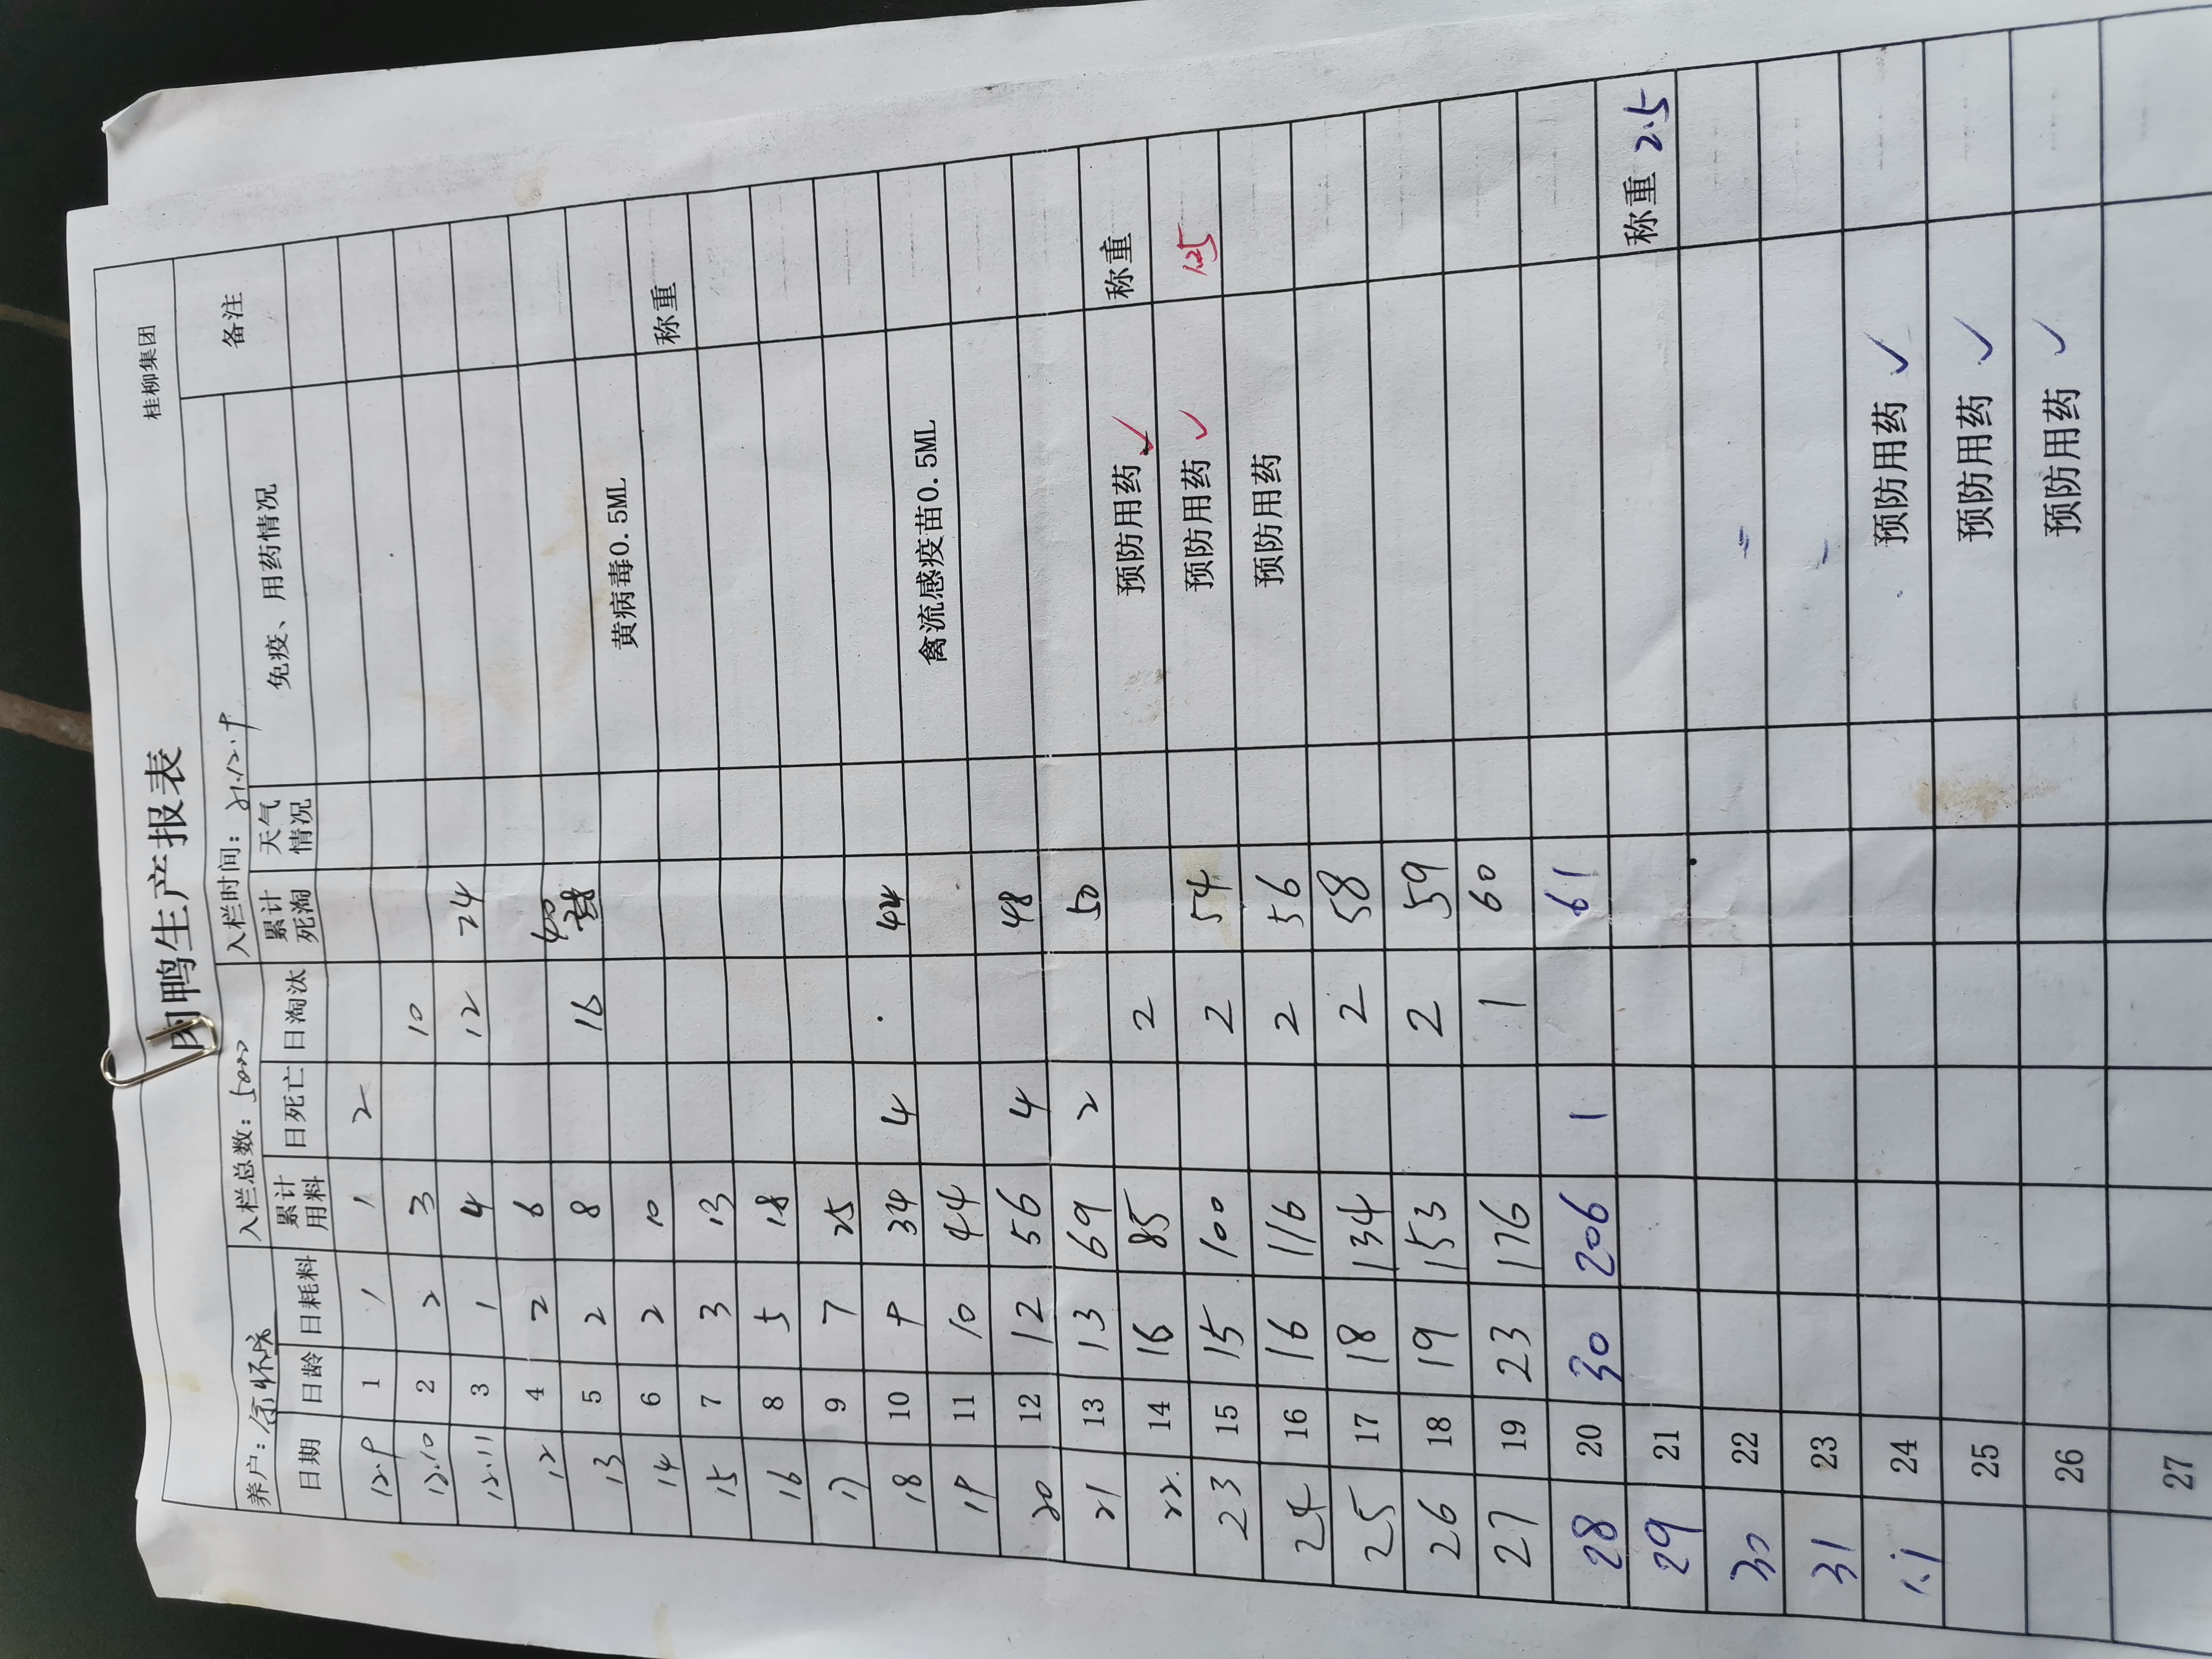 肉鸭生产报表
桂柳集团
养户：余怀 入栏总数：5000 入栏时间：21.12.9
日期 日龄 日耗料 累计用料 日死亡 日淘汰 累计死淘 天气情况 免疫、用药情况 备注
12.9 1 1 1 2
12.10 2 2 3 10
12.11 3 1 4 12 24
12 4 2 6 40
13 5 2 8 16
14 6 2 10 黄病毒0.5ML
15 7 3 13 称重
16 8 5 18
17 9 7 25
18 10 9 34 4 44
19 11 10 44 禽流感疫苗0.5ML
20 12 12 56 4 48
21 13 13 69 2 50
22. 14 16 85 2 预防用药 ✓ 称重
23 15 15 100 2 54 预防用药 ✓ 1.25
24 16 16 116 2 56 预防用药
25 17 18 134 2 58
26 18 19 153 2 59
27 19 23 176 1 60
28 20 30 206 1 61
29 21 称重 2.5
30 22
31 23
1.1 24 预防用药 ✓
25 预防用药 ✓
26 预防用药 ✓
27